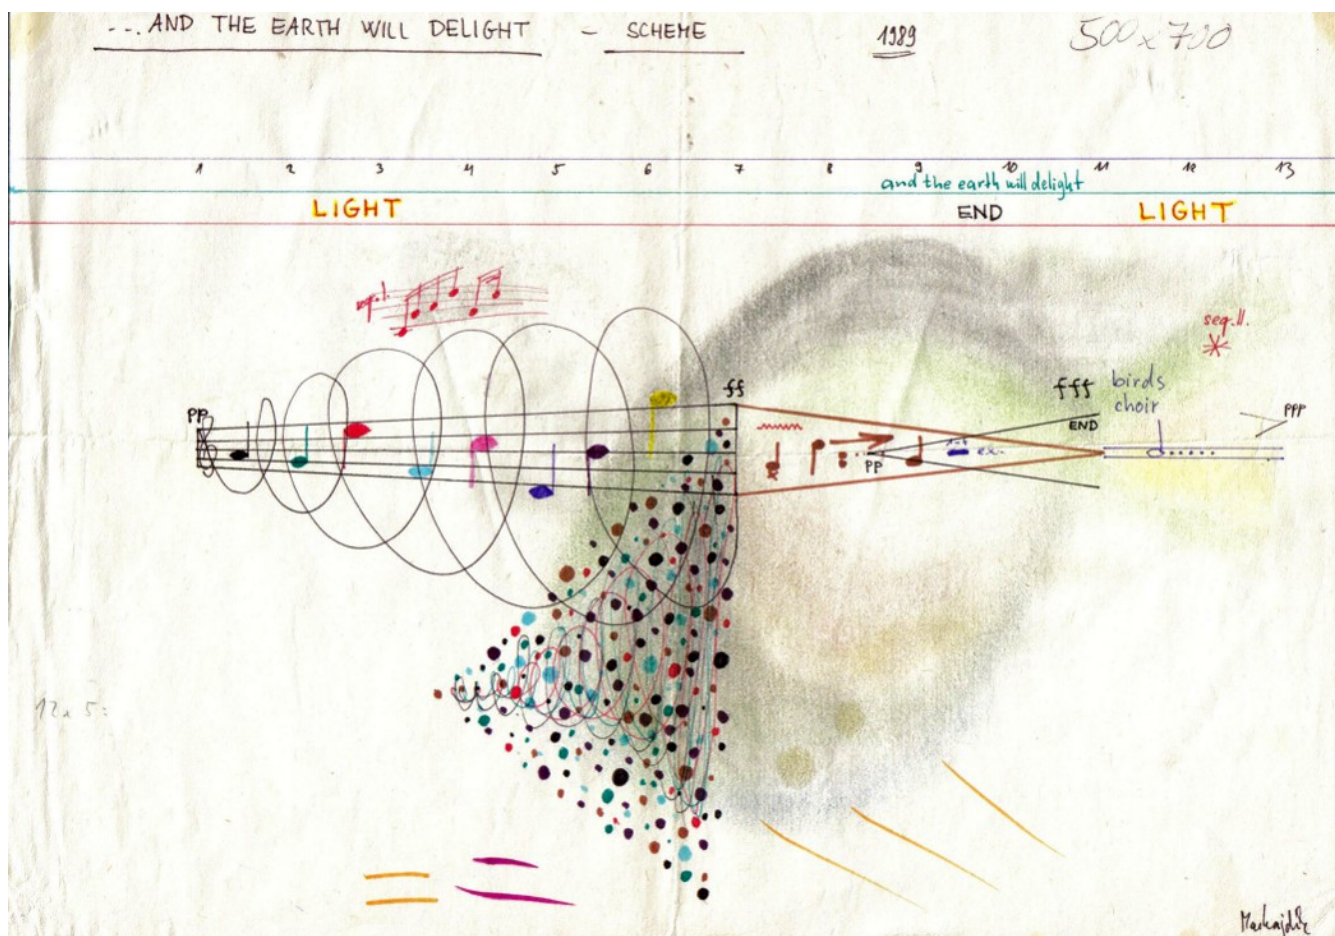 ...AND THE EARTH WILL DELIGHT - SCHEME 1989 500 x 700
1 2 3 4 5 6 7 8 9 10 11 12 13
and the earth will delight
LIGHT END LIGHT
seq.I.
seq.II.
pp
ff
fff
birds
choir
END
PPP
pp
ex.
12 x 5 =